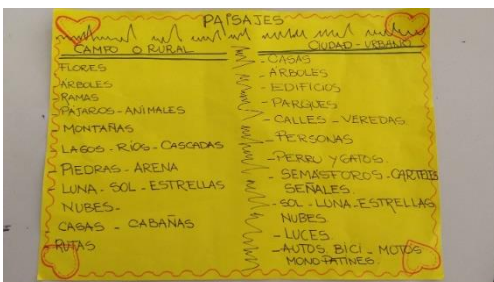 PAISAJES
CAMPO O RURAL
FLORES
ÁRBOLES
RAMAS
PÁJAROS - ANIMALES
MONTAÑAS
LAGOS - RÍOS - CASCADAS
PIEDRAS - ARENA
LUNA - SOL - ESTRELLAS
NUBES -
CASAS - CABAÑAS
RUTAS
CIUDAD - URBANO
- CASAS
- ÁRBOLES
- EDIFICIOS
- PARQUES
- CALLES - VEREDAS
- PERSONAS
- PERRO Y GATOS
- SEMÁSFOROS - CARTELES
SEÑALES.
- SOL - LUNA - ESTRELLAS
NUBES
- LUCES
- AUTOS. BICI - MOTOS
MONOPATINES.